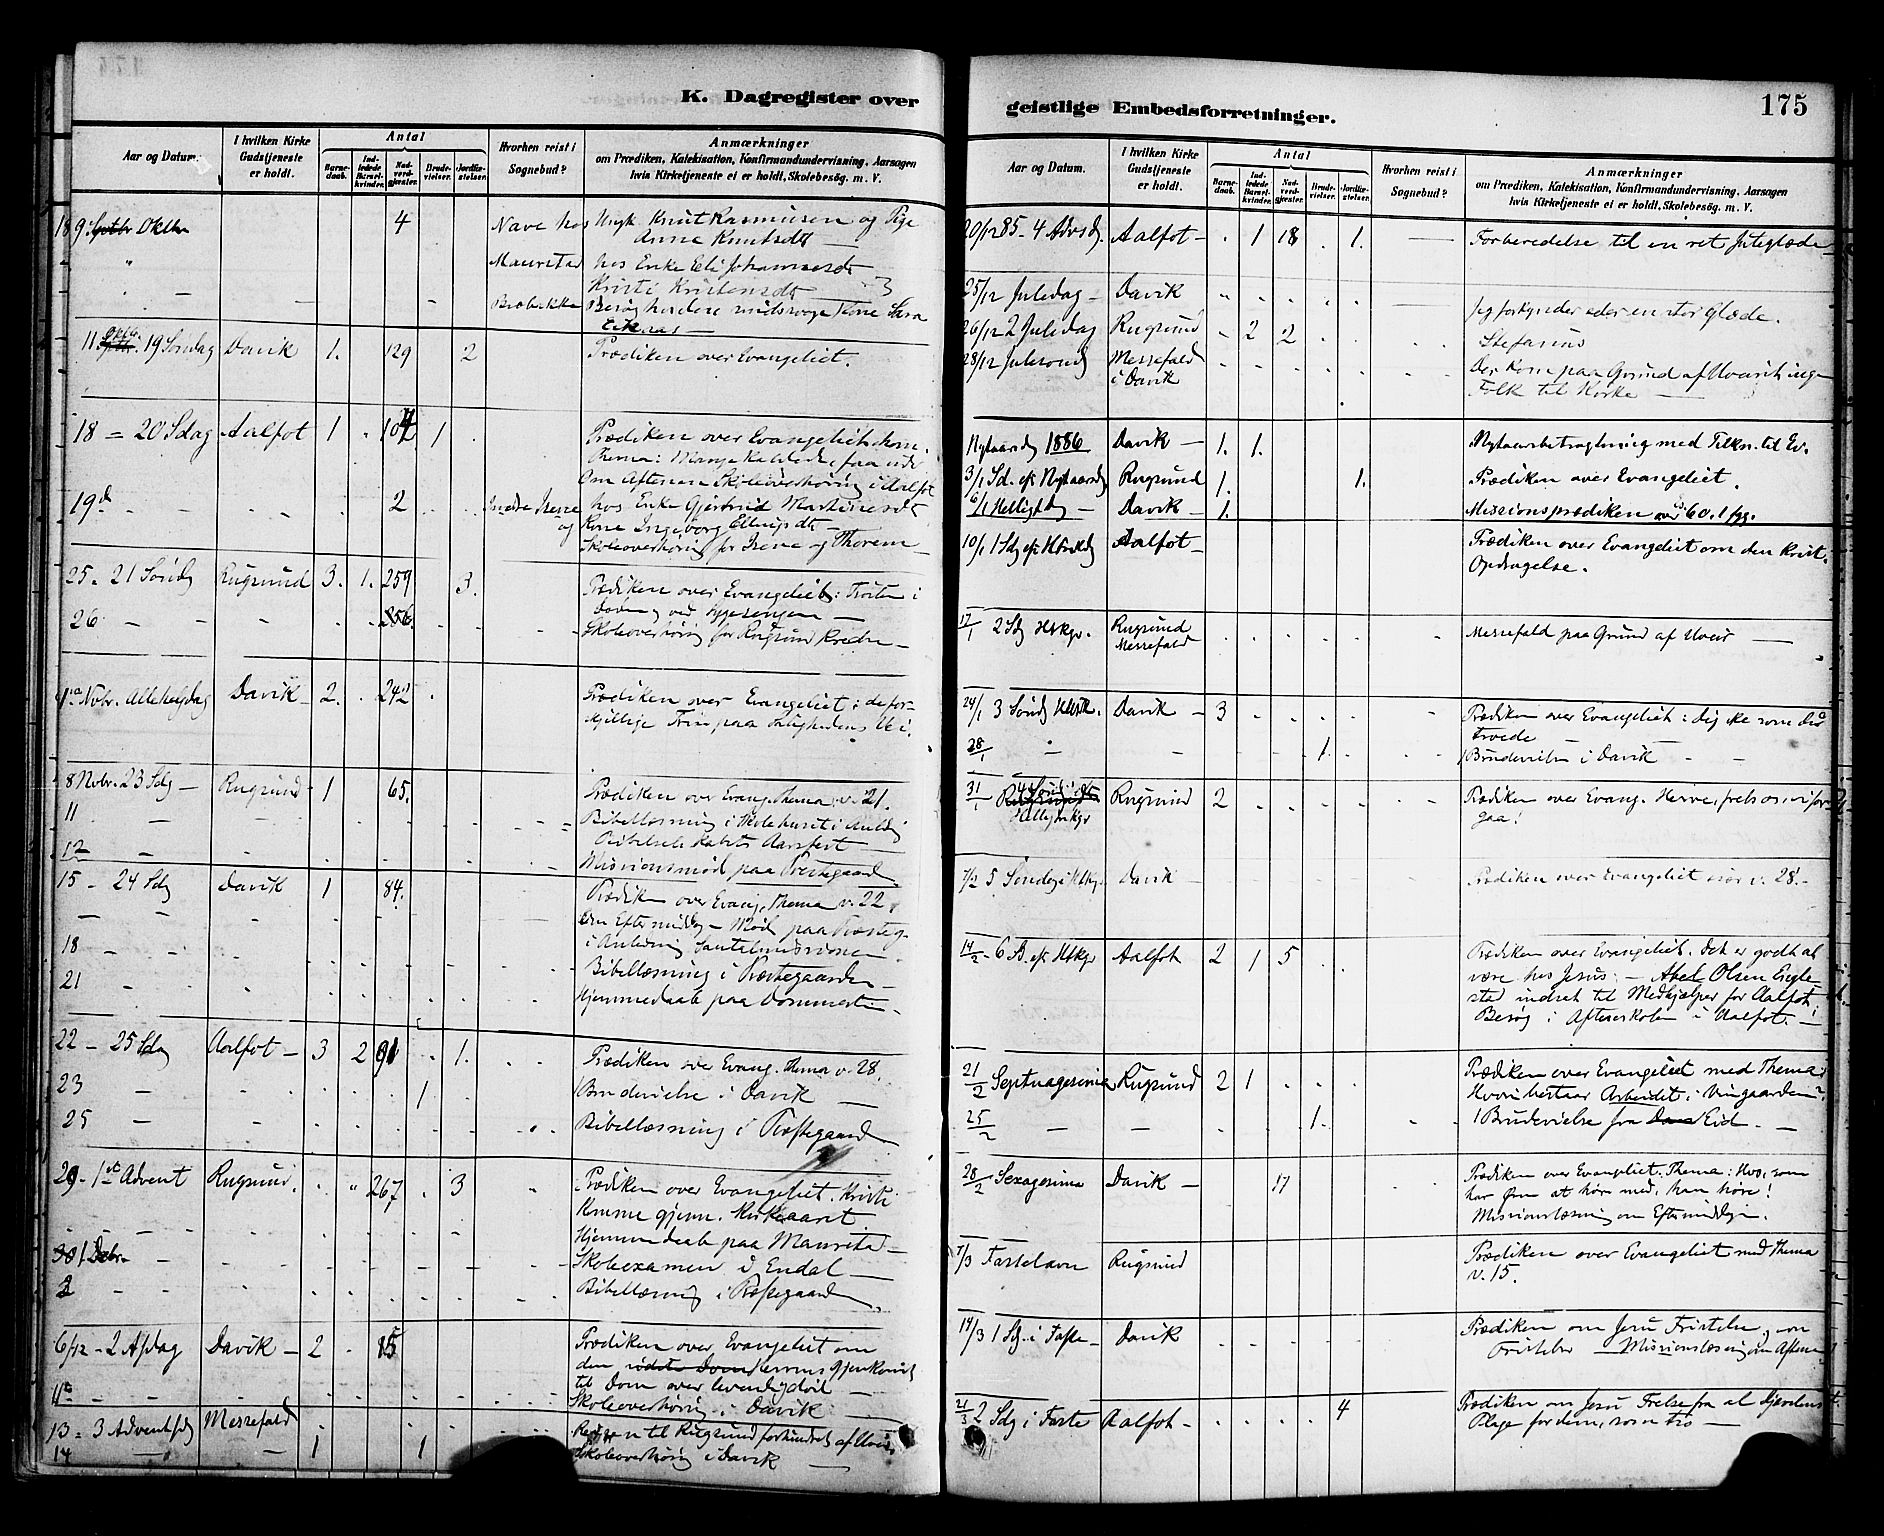 K. Dagregister over
Aar og Datum.
I hvilken Kirke Gudstjeneste er holdt.
Antal
Barnedaab.
Indledede Barselkvinder.
Nadverdgjester.
Brudevielser.
Jordfæstelser.
Hvorhen reist i Sognebud?
Anmærkninger
om Prædiken, Katekisation, Konfirmandundervisning, Aarsagen
hvis Kirketjeneste ei er holdt, Skolebesøg. m. V.
9 Oktbr 4 Nave hos Ungk Knut Rasmussen og Pige
Anna Knutsdt
" Maurstad hos Enke Eli Johannesdt
Kristi Kristensdt
11 19 Søndag Davik 1. 129 2 Prædiken over Evangeliet.
18 = 20 Sdag Aalfot 1 104 1 Prædiken over Evangeliet
Thema: Mange kaldede, faa udv.
Om Aftenen Skoleoverhøring i Aalfot
19d 2 hos Enke Gjertrud Martinesdt
og Kone Ingeborg
Skoleoverhøring for Isene og Thorem
25. 21 Sønd Rugsund 3. 1. 259 3. Prædiken over Evangeliet: Trøsten i
Døden og ved Sygesengen
26 256. Skoleoverhøring for Rugsund Kreds
1ste Novbr. Allehelgdag Davik 2. 242 Prædiken over Evangeliet: de for-
skjellige Trin paa Salighedens Vei.
8 Novbr. 23 Sdg Rugsund 1 65. Prædiken over Evang. Thema v. 21.
11 Bibellæsning i Skolehuset i Anledg
Bibelselskabets Aarsfest
12 Missionsmød paa Prestegaarden
15 - 24 Sdg Davik 1 84. Prædiken over Evang. Thema v. 22.
Om Eftermiddg - Mød paa Præsteg.
i Anledning Santalmissionen
18 Bibellæsning i Præstegaarden
21 Hjemmedaab paa Dommest.
22 - 25 Sdg Aalfot 3 2 91 1. Prædiken over Evang. Thema v. 28.
23 1 1 Brudevielse i Davik
25 Bibellæsning i Præstegaard
29 - 1ste Advent Rugsund. 267 3 Prædiken over Evangeliet. Kristi
Komme gjenn. Kirkeaaret
Hjemmedaab paa Maursta
1 Debr. Skoleexamen i Endal
2 Bibellæsning i Præstegaarden
6/12 - 2 Afdag Davik 2 85 Prædiken over Evangeliet om
den Herrens Gjenkomst
til Dom over levende og død
11te Skoleoverhøring i Davik
13 = 3 Adventsdg Messefald til Rugsund forhindret af Uveir
14 1 1 Skoleoverhøring i Davik
geistlige Embedsforretninger.
175
Aar og Datum.
I hvilken Kirke Gudstjeneste er holdt.
Antal
Barnedaab.
Indledede Barselkvinder.
Nadverdgjester.
Brudevielser.
Jordfæstelser.
Hvorhen reist i Sognebud?
Anmærkninger
om Prædiken, Katekisation, Konfirmandundervisning, Aarsagen
hvis Kirketjeneste ei er holdt, Skolebesøg. m. V.
20/12 85 - 4 Advsdg. Aalfot 1 18 1. Forberedelse til en ret Juleglæde
25/12 Juledag Davik Jeg forkynder eder en stor Glæde.
26/12 2 Juledag Rugsund 2 2 Stefanus
28/12 Julesønd Messefald i Davik Der kom paa Grund af Uveir ingen
Folk til Kirke
Nytaarsdg 1886 Davik 1. 1. Nytaarsbetragtning med Tilkn. til Ev.
3/1 Sd. eft Nytaarsdg Rugsund 1. 1. Prædiken over Evangeliet.
6/1 Helligt dg Davik 1. Missionsprædiken over 60. 1 flg.
10/1 1 Sdg eft Aalfot Prædiken over Evangeliet om den krist.
Opdragelse.
17/1 2 Sdg Rugsund Messefald Messefald paa Grund af Uveir
24/1 3 Sønd Davik 3 Prædiken over Evangeliet: dig ske som du
troede
28/1 1. 1 Brudevielse i Davik
31/1 Rugsund 2 Prædiken over Evang. Herre, frels os, vi for-
gaa!
7/2 5 Søndg i Davik Prædiken over Evangeliet især v. 28.
14/2 - 6 Aalfot 2 1 5 Prædiken over Evangeliet. Det er godt at
være hos Jesus: - Abed Olsen
indsat til Medhjælper for Aalfot.
Besøg i Aftenskolen i Aalfot.
21/2 Septuagesima Rugsund 2 1 Prædiken over Evangeliet med Thema:
Hvori bestaar Arbeidet i Vingaarden?
25/2 1. 1 Brudevielse fra Eid
28/2 Sexagesima Davik 17 Prædiken over Evangeliet. Thema: Hvo, som
har Øren at høre med, han høre!
Missionslæsning om Eftermiddgn.
7/3 Fastelavn Rugsund Prædiken over Evangeliet med Thema
v. 15.
14/3 1 Sdg. i Faste Davik Prædiken om Jesu Fristelse,
Missionslæsning om Aftenen
21/3 2 Sdg i Faste Aalfot 4 Prædiken om Jesu Frelse fra al Djævelens
Plage for dem, som tro